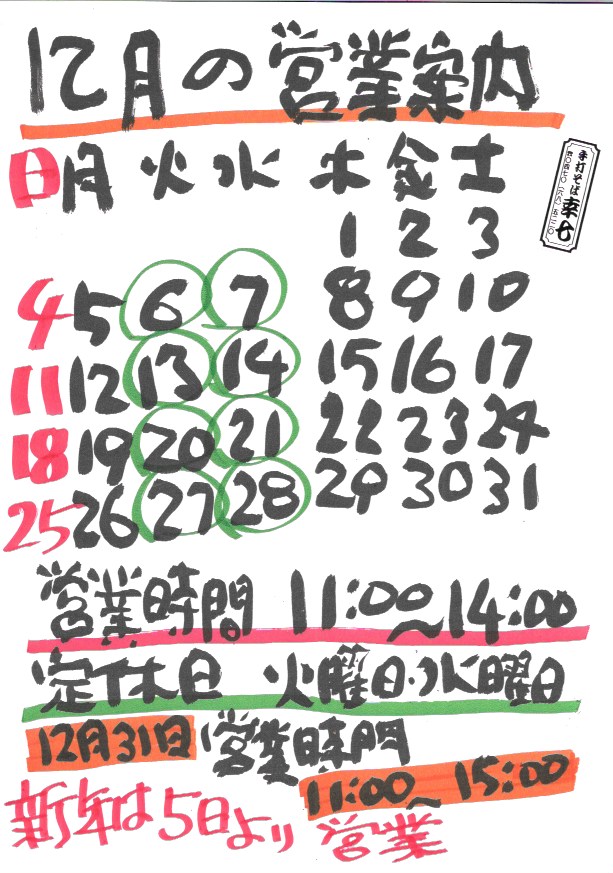 12月の営業案内
日 月 火 水 木 金 土
1 2 3
4 5 6 7 8 9 10
11 12 13 14 15 16 17
18 19 20 21 22 23 24
25 26 27 28 29 30 31
営業時間 11:00~14:00
定休日 火曜日・水曜日
12月31日 営業時間
11:00~15:00
新年は5日より営業
手打そば 幸七